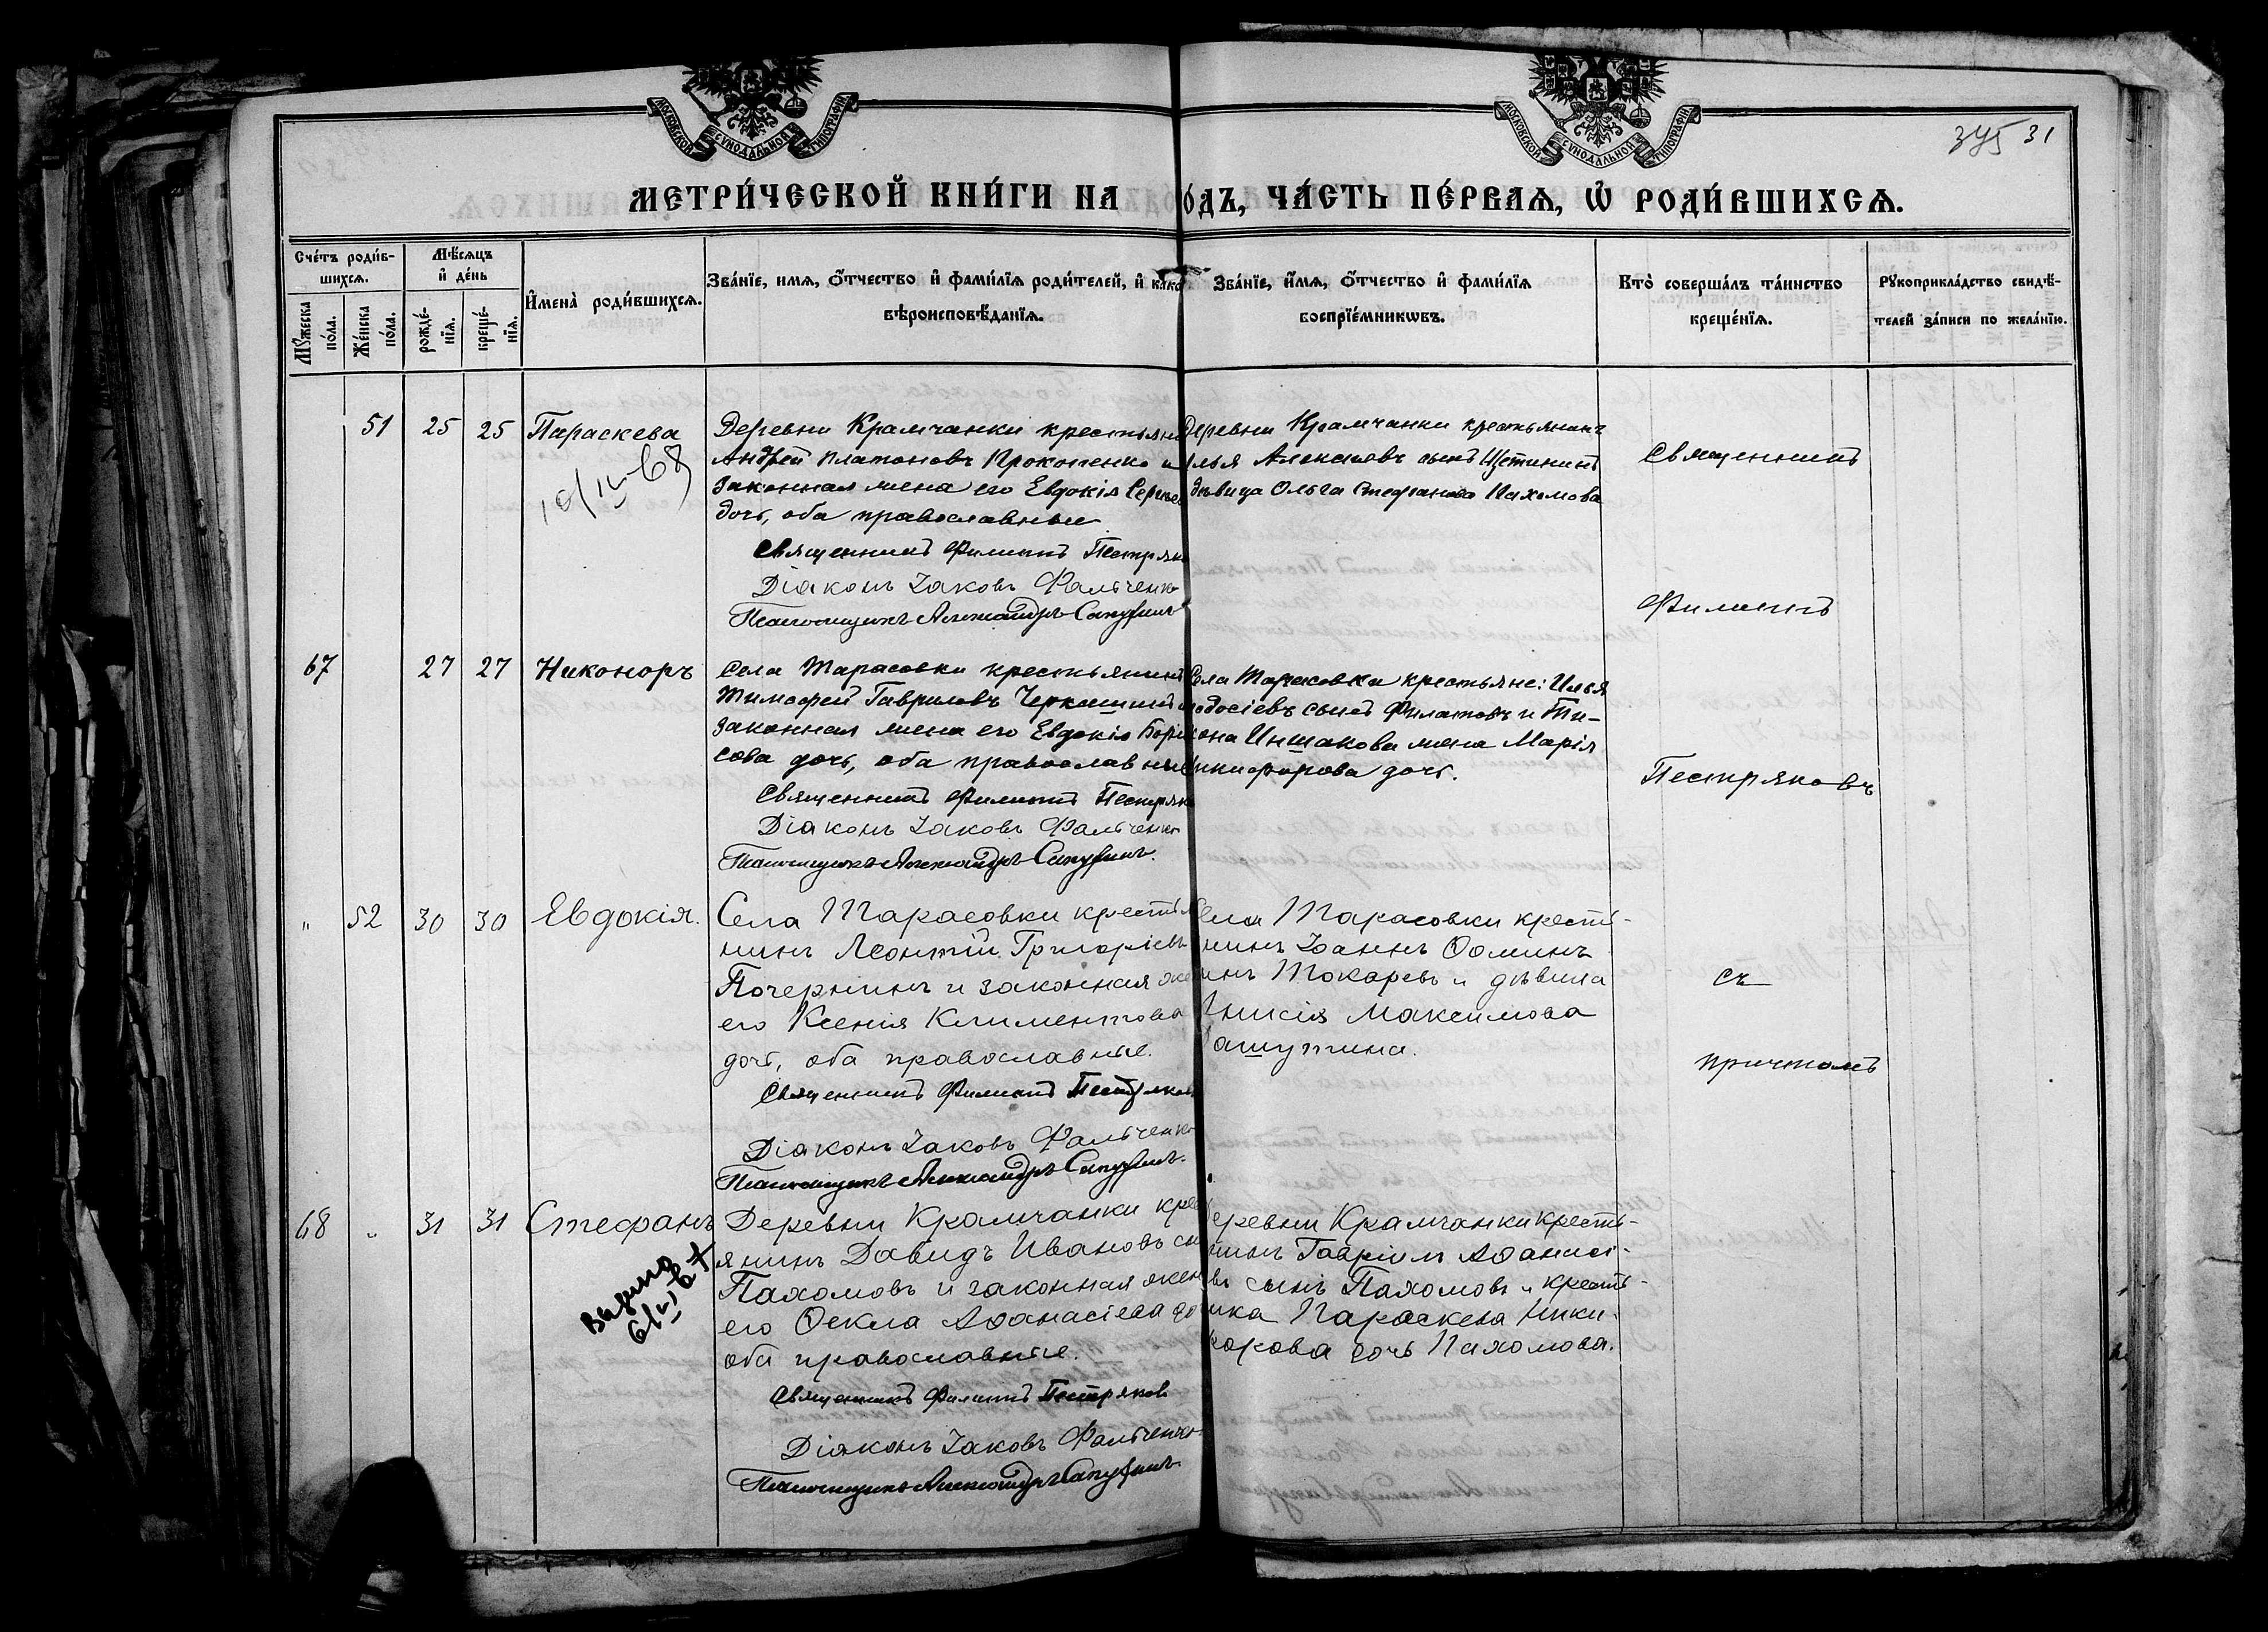 МОСКОВСКОЙ СѴНОДАЛЬНОЙ ТИПОГРАФІИ
МОСКОВСКОЙ СѴНОДАЛЬНОЙ ТИПОГРАФІИ
31
МЕТРИ́ЧЕСКОЙ КНИ́ГИ НА
О́ДЪ, ЧА́СТЬ ПЕ́РВАѦ, Ѡ҆ РОДИ́ВШИХСѦ.
Сче́тъ роди́в-
шихсѧ.
Мѣ́сѧцъ
и҆ де́нь
Мꙋ́жеска
по́ла.
Же́нска
по́ла.
рожде́-
нїѧ.
креще́-
нїѧ.
И҆мена̀ роди́вшихсѧ.
Зва́нїе, имѧ, ѻ҆́тчество и҆ фами́лїѧ роди́телей, и҆ како
вѣроисповѣ́данїѧ.
Зва́нїе, и҆́мѧ, ѻ҆́тчество и҆ фами́лїѧ
воспрїе́мникѡвъ.
Кто̀ соверша́лъ та́инство
креще́нїѧ.
Рꙋкоприкла́дство свидѣ́-
телей за́писи по жела́нїю.
51 25 25 Параскева
Деревни Крамчанки крестьяни
Андрей Платоновъ Прокопенко и
законная жена его Евдокія Сергѣев
дочь, оба православные
Священникъ Филиппъ Пестряко
Діаконъ Іаковъ Фальченко
Псаломщикъ Александръ
Деревни Крамчанки крестьянинъ
Илья Алексѣевъ сынъ Щетининъ
дѣвица Ольга Стефанова Пахомова
Священникъ
Филиппъ
Пестряковъ
съ
причтомъ
67 27 27 Никоноръ
Села Тарасовки крестьянинъ
Тимофей Гавриловъ Черкашинъ и
законная жена его Евдокія Бори
сова дочь, оба православные
Священникъ Филиппъ Пестряко
Діаконъ Іаковъ Фальченко
Псаломщикъ Александръ
Села Тарасовки крестьяне: Илья
одосіевъ сынъ Филатовъ и Ти-
она Иншакова жена Марія
икифорова дочь.
" 52 30 30 Евдокія.
Села Тарасовки крестья
нинъ Леонтій Григорьевъ
Почернинъ и законная же
его Ксенія Климентова
дочь, оба православные.
Священникъ Филиппъ Пестряковъ
Діаконъ Іаковъ Фальченко
Псаломщикъ Александръ
ела Тарасовки кресть-
нинъ Іоаннъ Ѳоминъ
инъ Токаревъ и дѣвица
Анисія Максимова
ашутина.
68 " 31 31 Стефанъ
Деревни Крамчанки кре
янинъ Давидъ Ивановъ сы
Пахомовъ и законная жен
его Ѳекла Аѳанасіева до
оба православные.
Священникъ Филиппъ Пестряков
Діаконъ Іаковъ Фальченко
Псаломщикъ Александръ
еревни Крамчанки кресть-
нинъ Гавріилъ Аѳанасі-
въ сынъ Пахомовъ и кресть-
нка Параскева Ники-
форова дочь Пахомова.